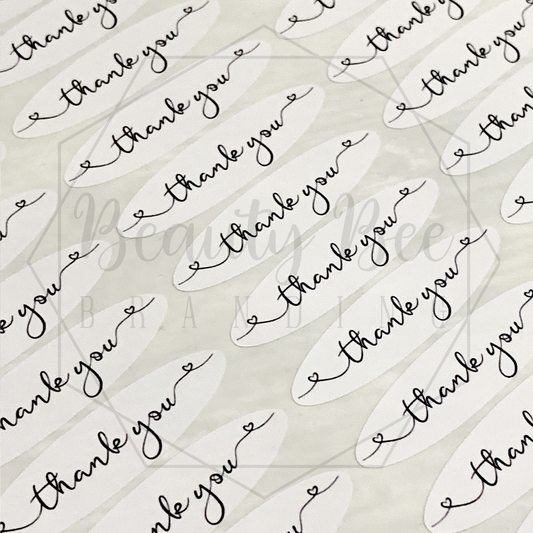 thank you
thank you
thank you
thank you
thank you
thank you
thank you
thank you
thank
thank you
thank you
thank
Beauty Bee
BRANDING
you
hank you
thank you
you